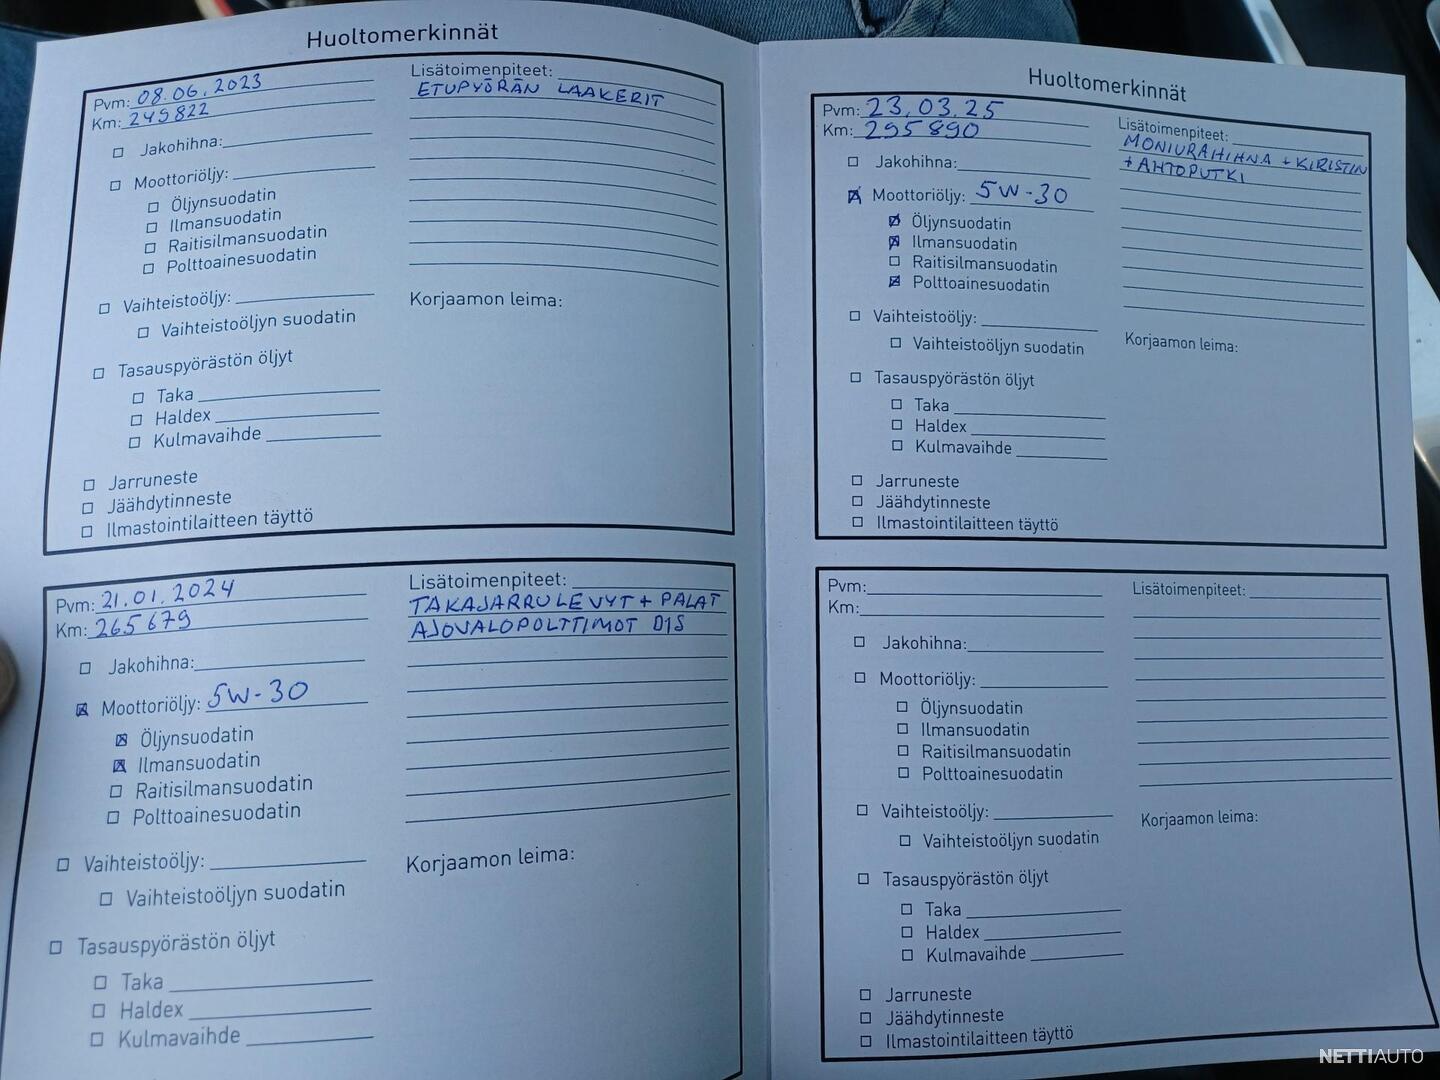 Huoltomerkinnät
Pvm: 08.06.2023
Km: 249822
Jakohihna:
Moottoriöljy:
Öljynsuodatin
Ilmansuodatin
Raitisilmansuodatin
Polttoainesuodatin
Vaihteistoöljy:
Vaihteistoöljyn suodatin
Tasauspyörästön öljyt
Taka
Haldex
Kulmavaihde
Jarruneste
Jäähdytinneste
Ilmastointilaitteen täyttö
Lisätoimenpiteet:
ETUPYÖRÄN LAAKERIT
Korjaamon leima:
Pvm: 21.01.2024
Km: 265679
Jakohihna:
Moottoriöljy: 5W-30
Öljynsuodatin
Ilmansuodatin
Raitisilmansuodatin
Polttoainesuodatin
Vaihteistoöljy:
Vaihteistoöljyn suodatin
Tasauspyörästön öljyt
Taka
Haldex
Kulmavaihde
Lisätoimenpiteet:
TAKAJARRULEVYT + PALAT
AJOVALOPOLTTIMOT D1S
Korjaamon leima:
Huoltomerkinnät
Pvm: 23.03.25
Km: 295890
Jakohihna:
Moottoriöljy: 5W-30
Öljynsuodatin
Ilmansuodatin
Raitisilmansuodatin
Polttoainesuodatin
Vaihteistoöljy:
Vaihteistoöljyn suodatin
Tasauspyörästön öljyt
Taka
Haldex
Kulmavaihde
Jarruneste
Jäähdytinneste
Ilmastointilaitteen täyttö
Lisätoimenpiteet:
MONIURAHIHNA + KIRISTIN
+ AHTOPUTKI
Korjaamon leima:
Pvm:
Km:
Jakohihna:
Moottoriöljy:
Öljynsuodatin
Ilmansuodatin
Raitisilmansuodatin
Polttoainesuodatin
Vaihteistoöljy:
Vaihteistoöljyn suodatin
Tasauspyörästön öljyt
Taka
Haldex
Kulmavaihde
Jarruneste
Jäähdytinneste
Ilmastointilaitteen täyttö
Lisätoimenpiteet:
Korjaamon leima:
NETTIAUTO